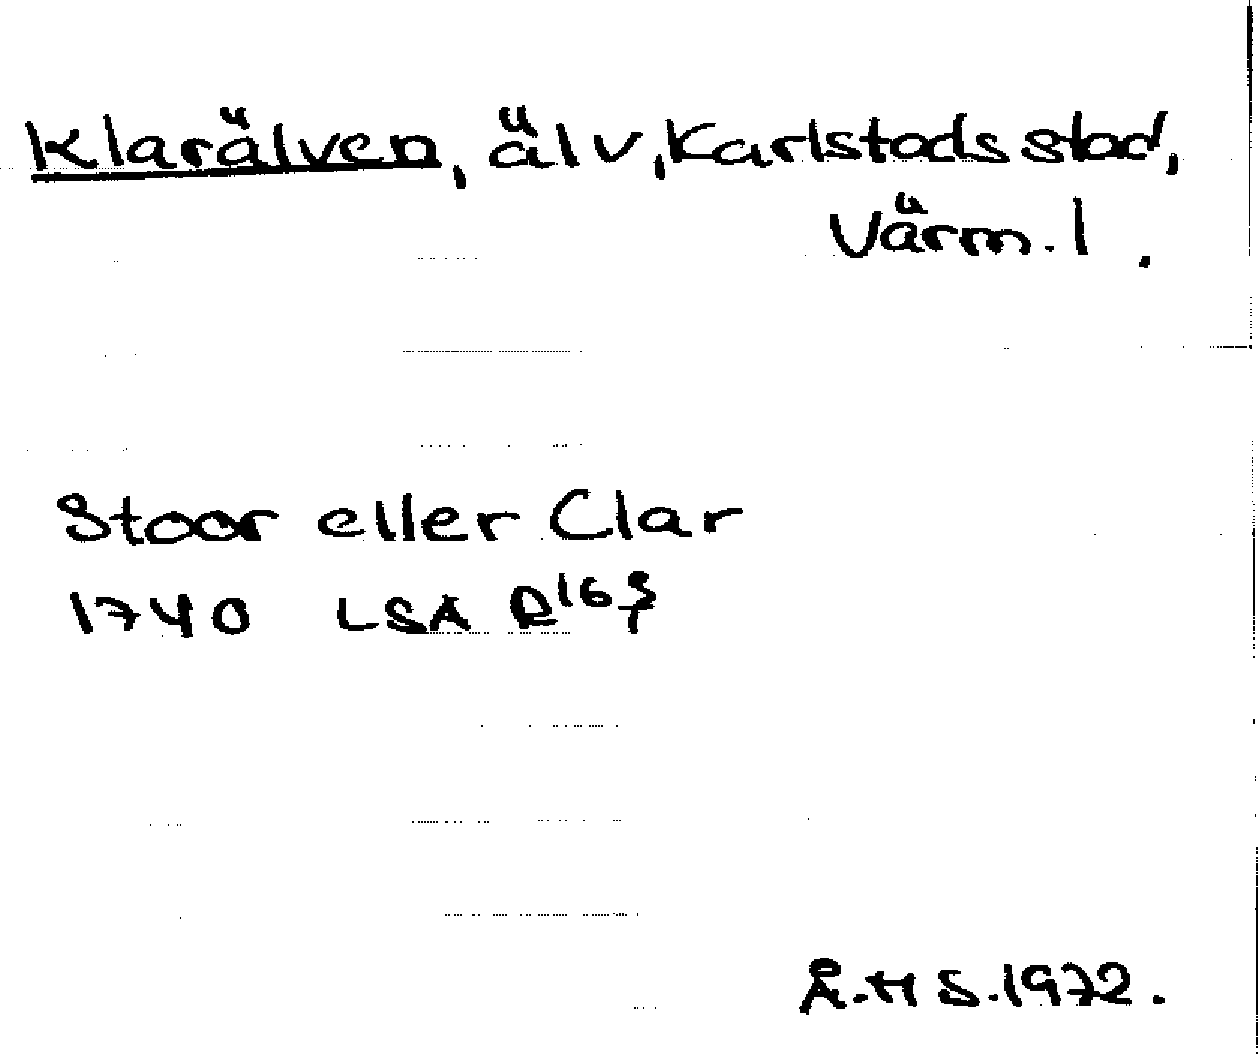 Klarälven, älv, Karlstads stad,
Värm. l.
Stoor eller Clar
1740 LSA R16
Å.H S. 1972.